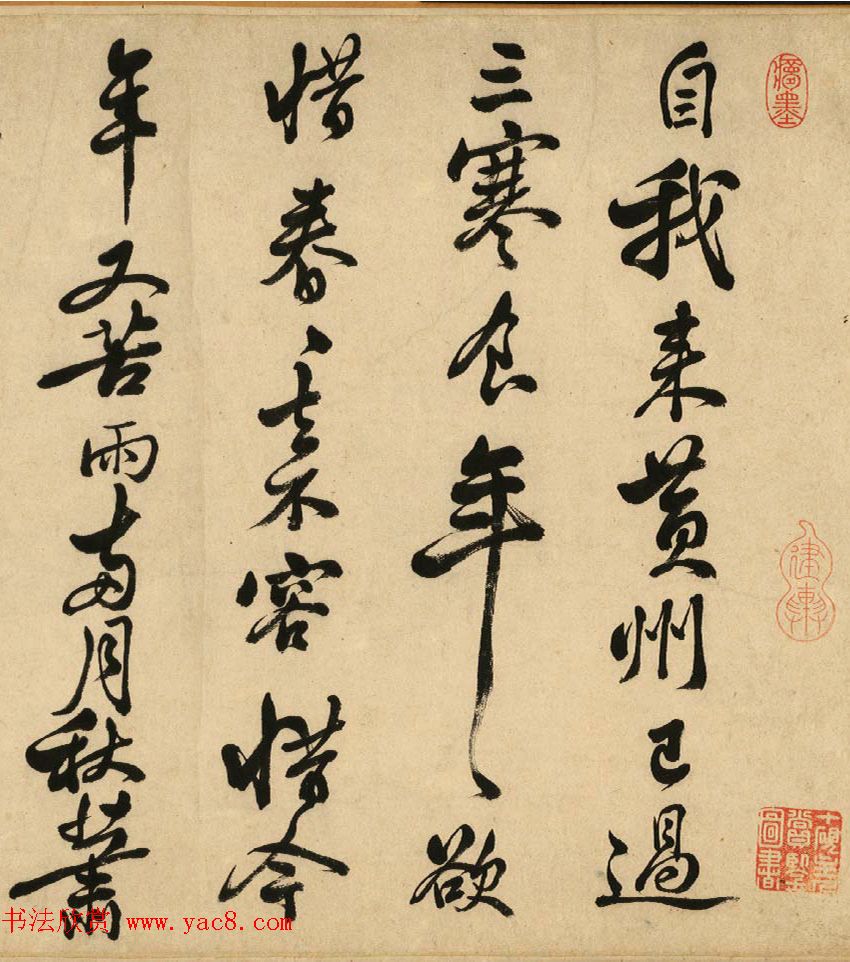 自我来黄州已過
三寒食年〻欲
惜春〻去不容惜今
年又苦雨兩月秋蕭
书法欣赏 www.yac8.com